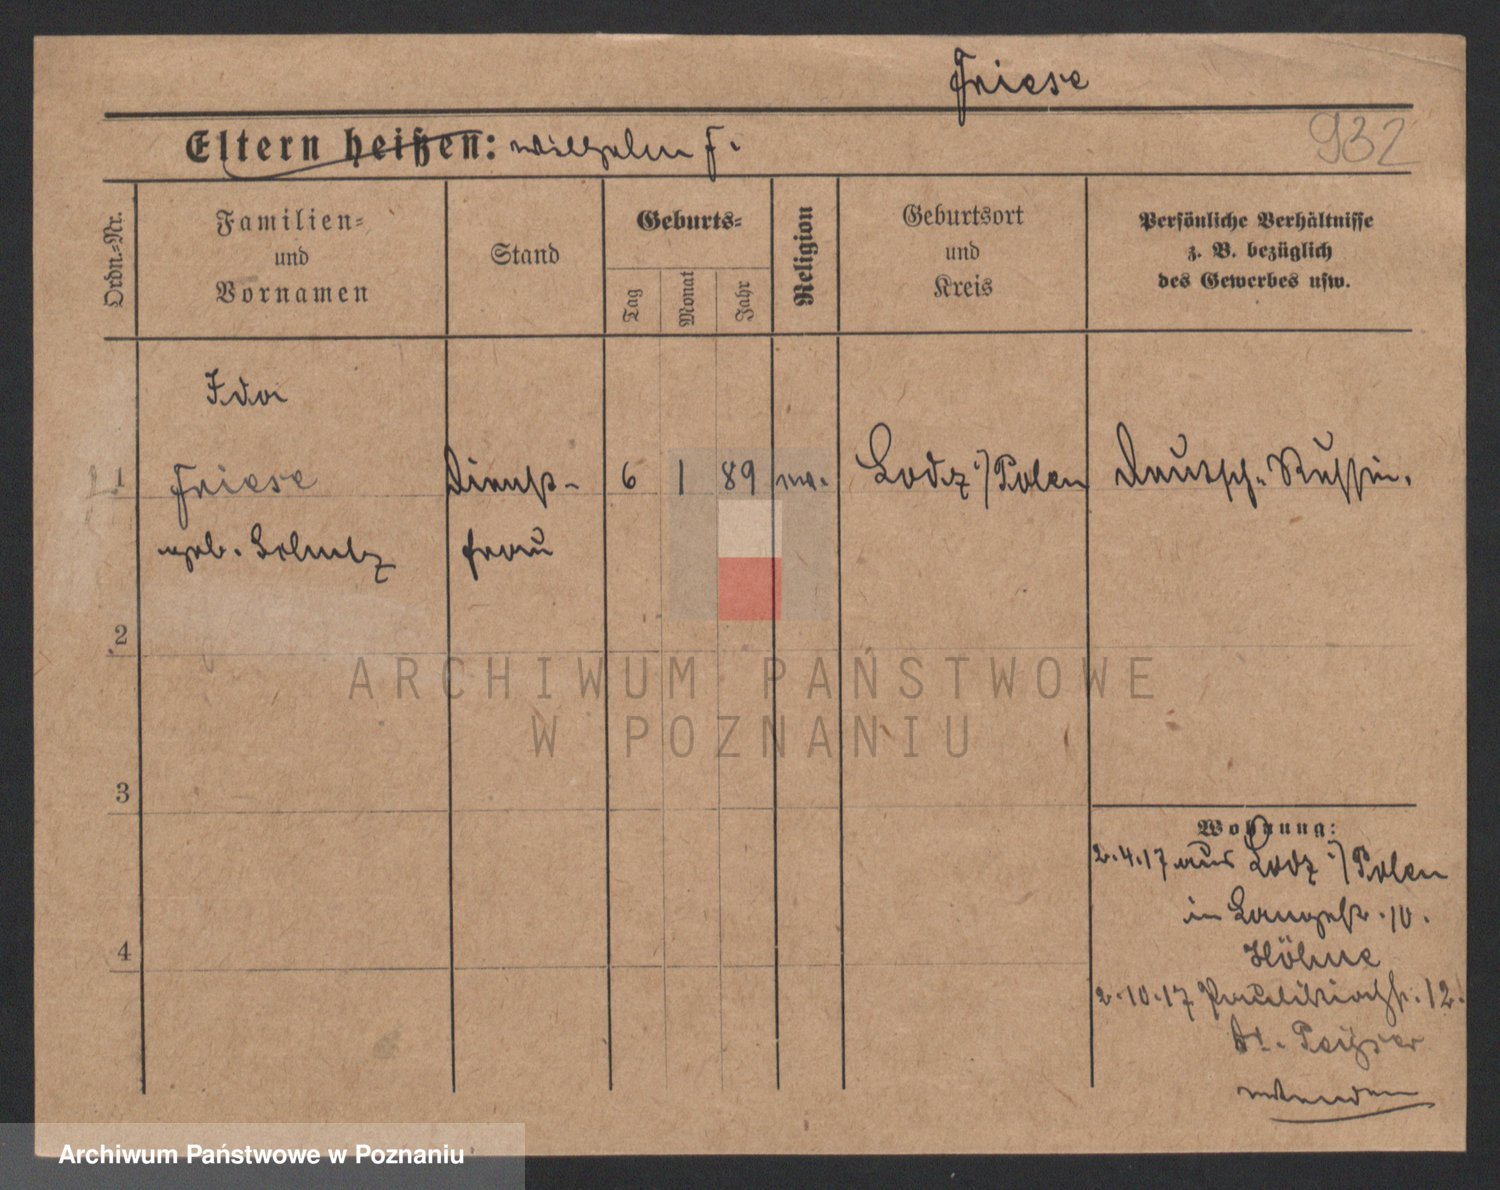 Friese
932
Eltern heißen: Wilhelm F.
Ordn.-Nr.
Familien-
und
Vornamen
Stand
Geburts-
Tag
Monat
Jahr
Religion
Geburtsort
und
Kreis
Persönliche Verhältnisse
z. B. bezüglich
des Gewerbes usw.
Ida
1 Friese Dienst- 6 1 89 ev. Lodz i/Polen Deutsch-Russin.
geb. Schulz frau
2
3
4
Wohnung:
2.4.17 aus Lodz i/Polen
in Langestr. 10.
Höhne
2.10.17 Paulikirchstr. 12.
Peyser
wenden
ARCHIWUM PAŃSTWOWE
W POZNANIU
Archiwum Państwowe w Poznaniu